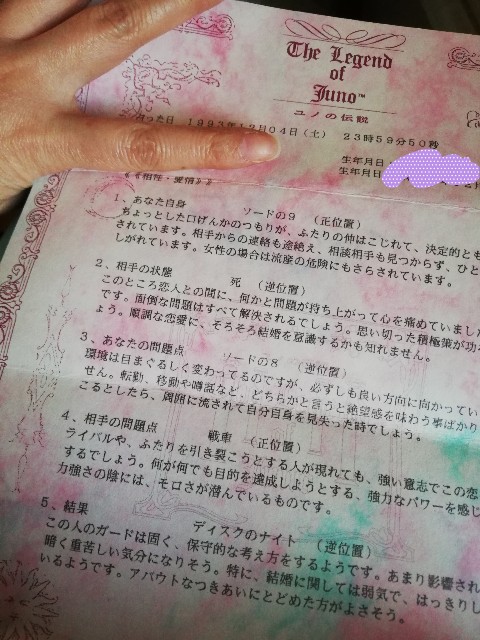 The Legend
of
Juno™
ユノの伝説
った日 1993年12月04日(土) 23時59分50秒
生年月日
生年月日
《《相性・愛情》》
1、あなた自身 ソードの9 (正位置)
ちょっとした口げんかのつもりが、ふたりの仲はこじれて、決定的とも
されています。相手からの連絡も途絶え、相談相手も見つからず、ひと
しがれています。女性の場合は流産の危険にもさらされています。
2、相手の状態 死 (逆位置)
このところ恋人との間に、何かと問題が持ち上がって心を痛めていました
です。面倒な問題はすべて解決されるでしょう。思い切った積極策が功
ょう。順調な恋愛に、そろそろ結婚を意識するかも知れません。
3、あなたの問題点 ソードの8 (逆位置)
環境は目まぐるしく変わってるのですが、必ずしも良い方向に向かってい
せん。転勤、移動や噂話など、どちらかと言うと絶望感を味わう事ばかり
こるとしたら、周囲に流されて自分自身を見失った時でしょう。
4、相手の問題点 戦車 (正位置)
ライバルや、ふたりを引き裂こうとする人が現れても、強い意志でこの恋
するでしょう。何が何でも目的を達成しようとする、強力なパワーを感じ
力強さの陰には、モロさが潜んでいるものです。
5、結果 ディスクのナイト (逆位置)
この人のガードは固く、保守的な考え方をするようです。あまり影響され
暗く重苦しい気分になりそう。特に、結婚に関しては弱気で、はっきりし
いるようです。アバウトなつきあいにとどめた方がよさそう。